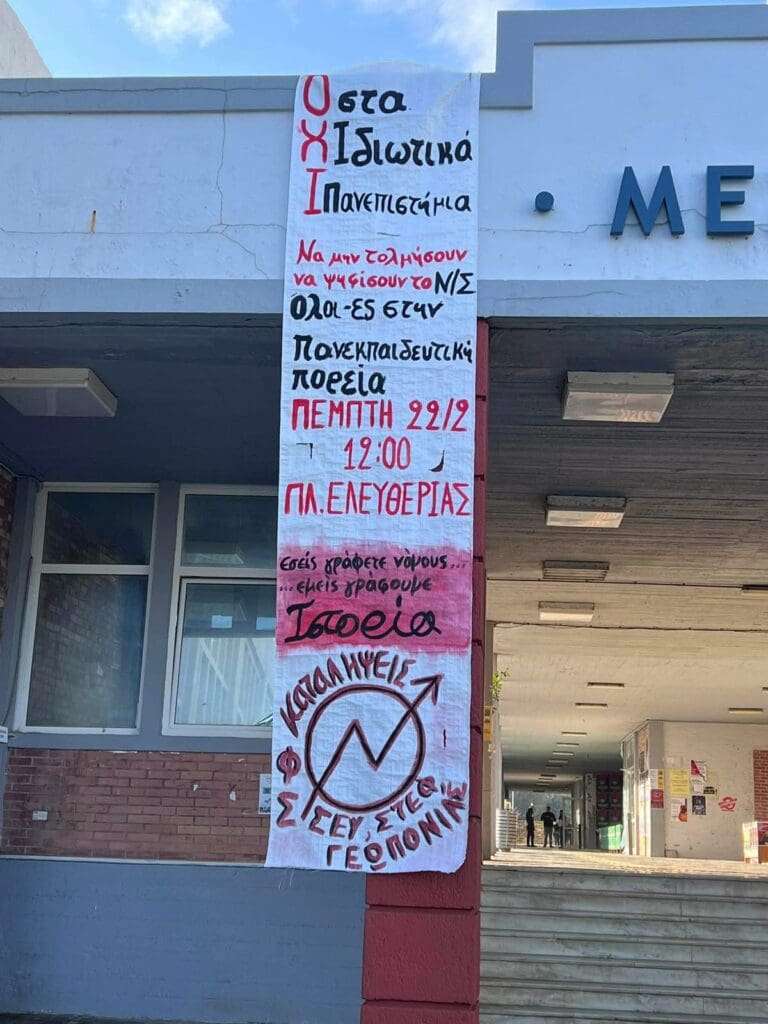 Όστα
ΧΙδιωτικά
ΙΠανεπιστήμια
Να μην τολμήσουν
να ψηφίσουν το Ν/Σ
Όλοι-ες στην
Πανεκπαιδευτική
πορεία
ΠΕΜΠΤΗ 22/2
12:00
ΠΛ.ΕΛΕΥΘΕΡΙΑΣ
εσείς γράφετε νόμους...
...εμείς γράφουμε
Ιστορία
ΚΑΤΑΛΗΨΕΙΣ
ΦΣ
ΣΕΥ, ΣΤΕΦ
ΓΕΩΠΟΝΙΑΣ
· ΜΕ